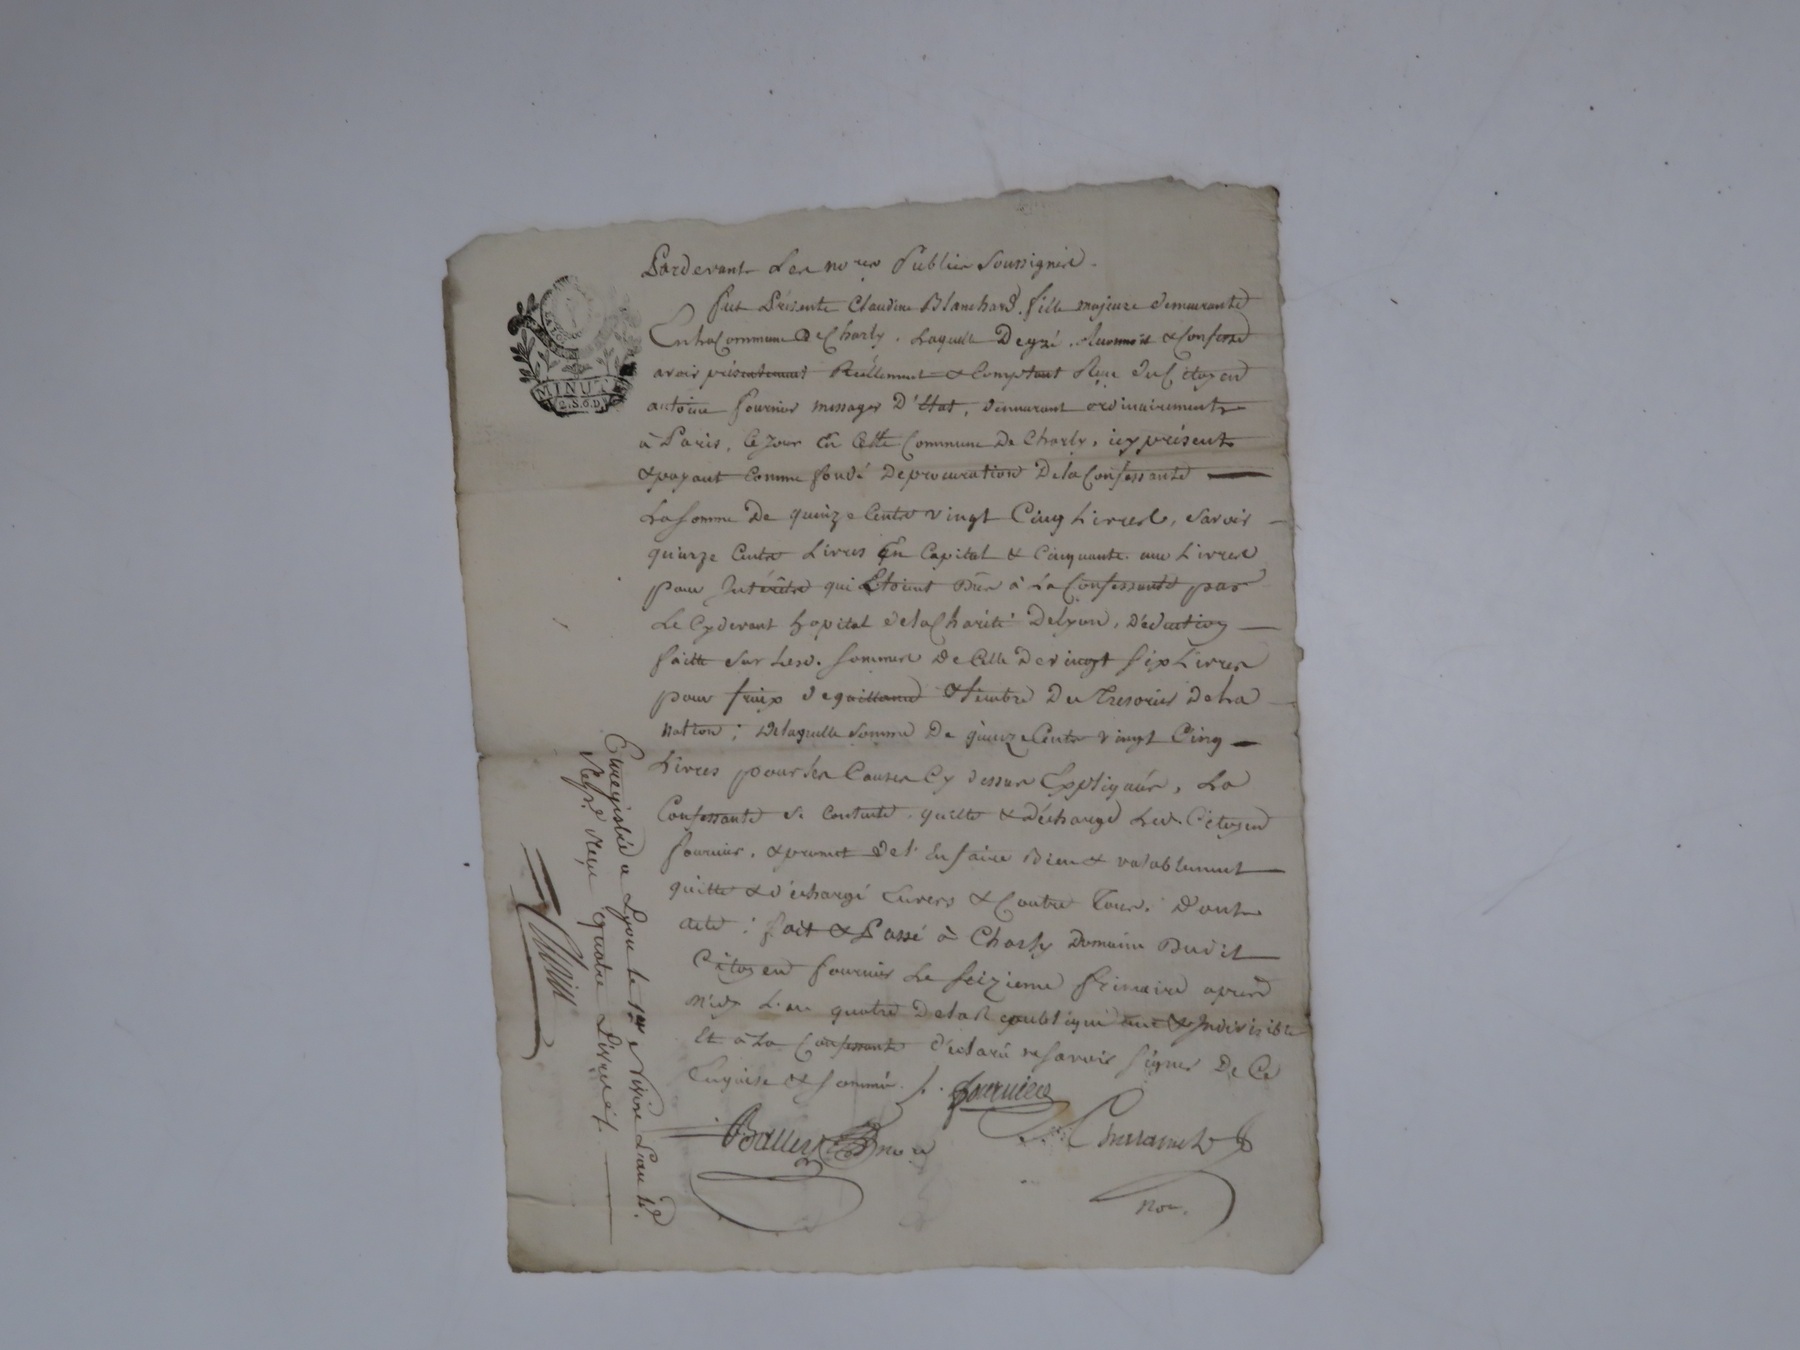 MINUTE
2.S.6.D
Pardevant Les no.res Publics Soussignés.
fut Présente Claudine Blanchard, fille majeure demeurante
En la Commune de Charly, Laquelle De gré, Reconnoit & Confesse
avoir présentement Réellement & Comptant Reçu du Citoyen
antoine fournier messager D'Etat, demeurant ordinairement
à Paris, Ce jour En Cette Commune De Charly, icy présent
& payant comme fondé De procuration De la Confessante
La somme De quinze Cents vingt Cinq Livres, savoir
quinze Cents Livres En Capital & Cinquante une Livres
pour Intérêts qui Etoient Dûs à La Confessante par
Le Cydevant hopital de la Charité De Lyon, Déduction
faitte sur Lesd. sommes De Celle De vingt six Livres
pour fraix de quittance & timbre Du Tresorier De la
nation; De laquelle somme De quinze Cents vingt Cinq
Livres pour les Causes Cy dessus Expliquées, La
Confessante se Contente, quitte & décharge Led. Citoyen
fournier, & promet de l'en faire Bien & valablement
quitte & déchargé Envers & Contre Tous. Dont
acte: fait & Passé à Charly Domaine Dudit
Citoyen fournier Le seizieme frimaire après
midy L'an quatre De la République une & Indivisible
Et à La Confessante déclaré ne savoir signer De Ce
Enquise & sommée. f. fournier
no.re
not.
Enregistré a Lyon le 1er Nivose L'an 4e.
Reçu quatre Livres